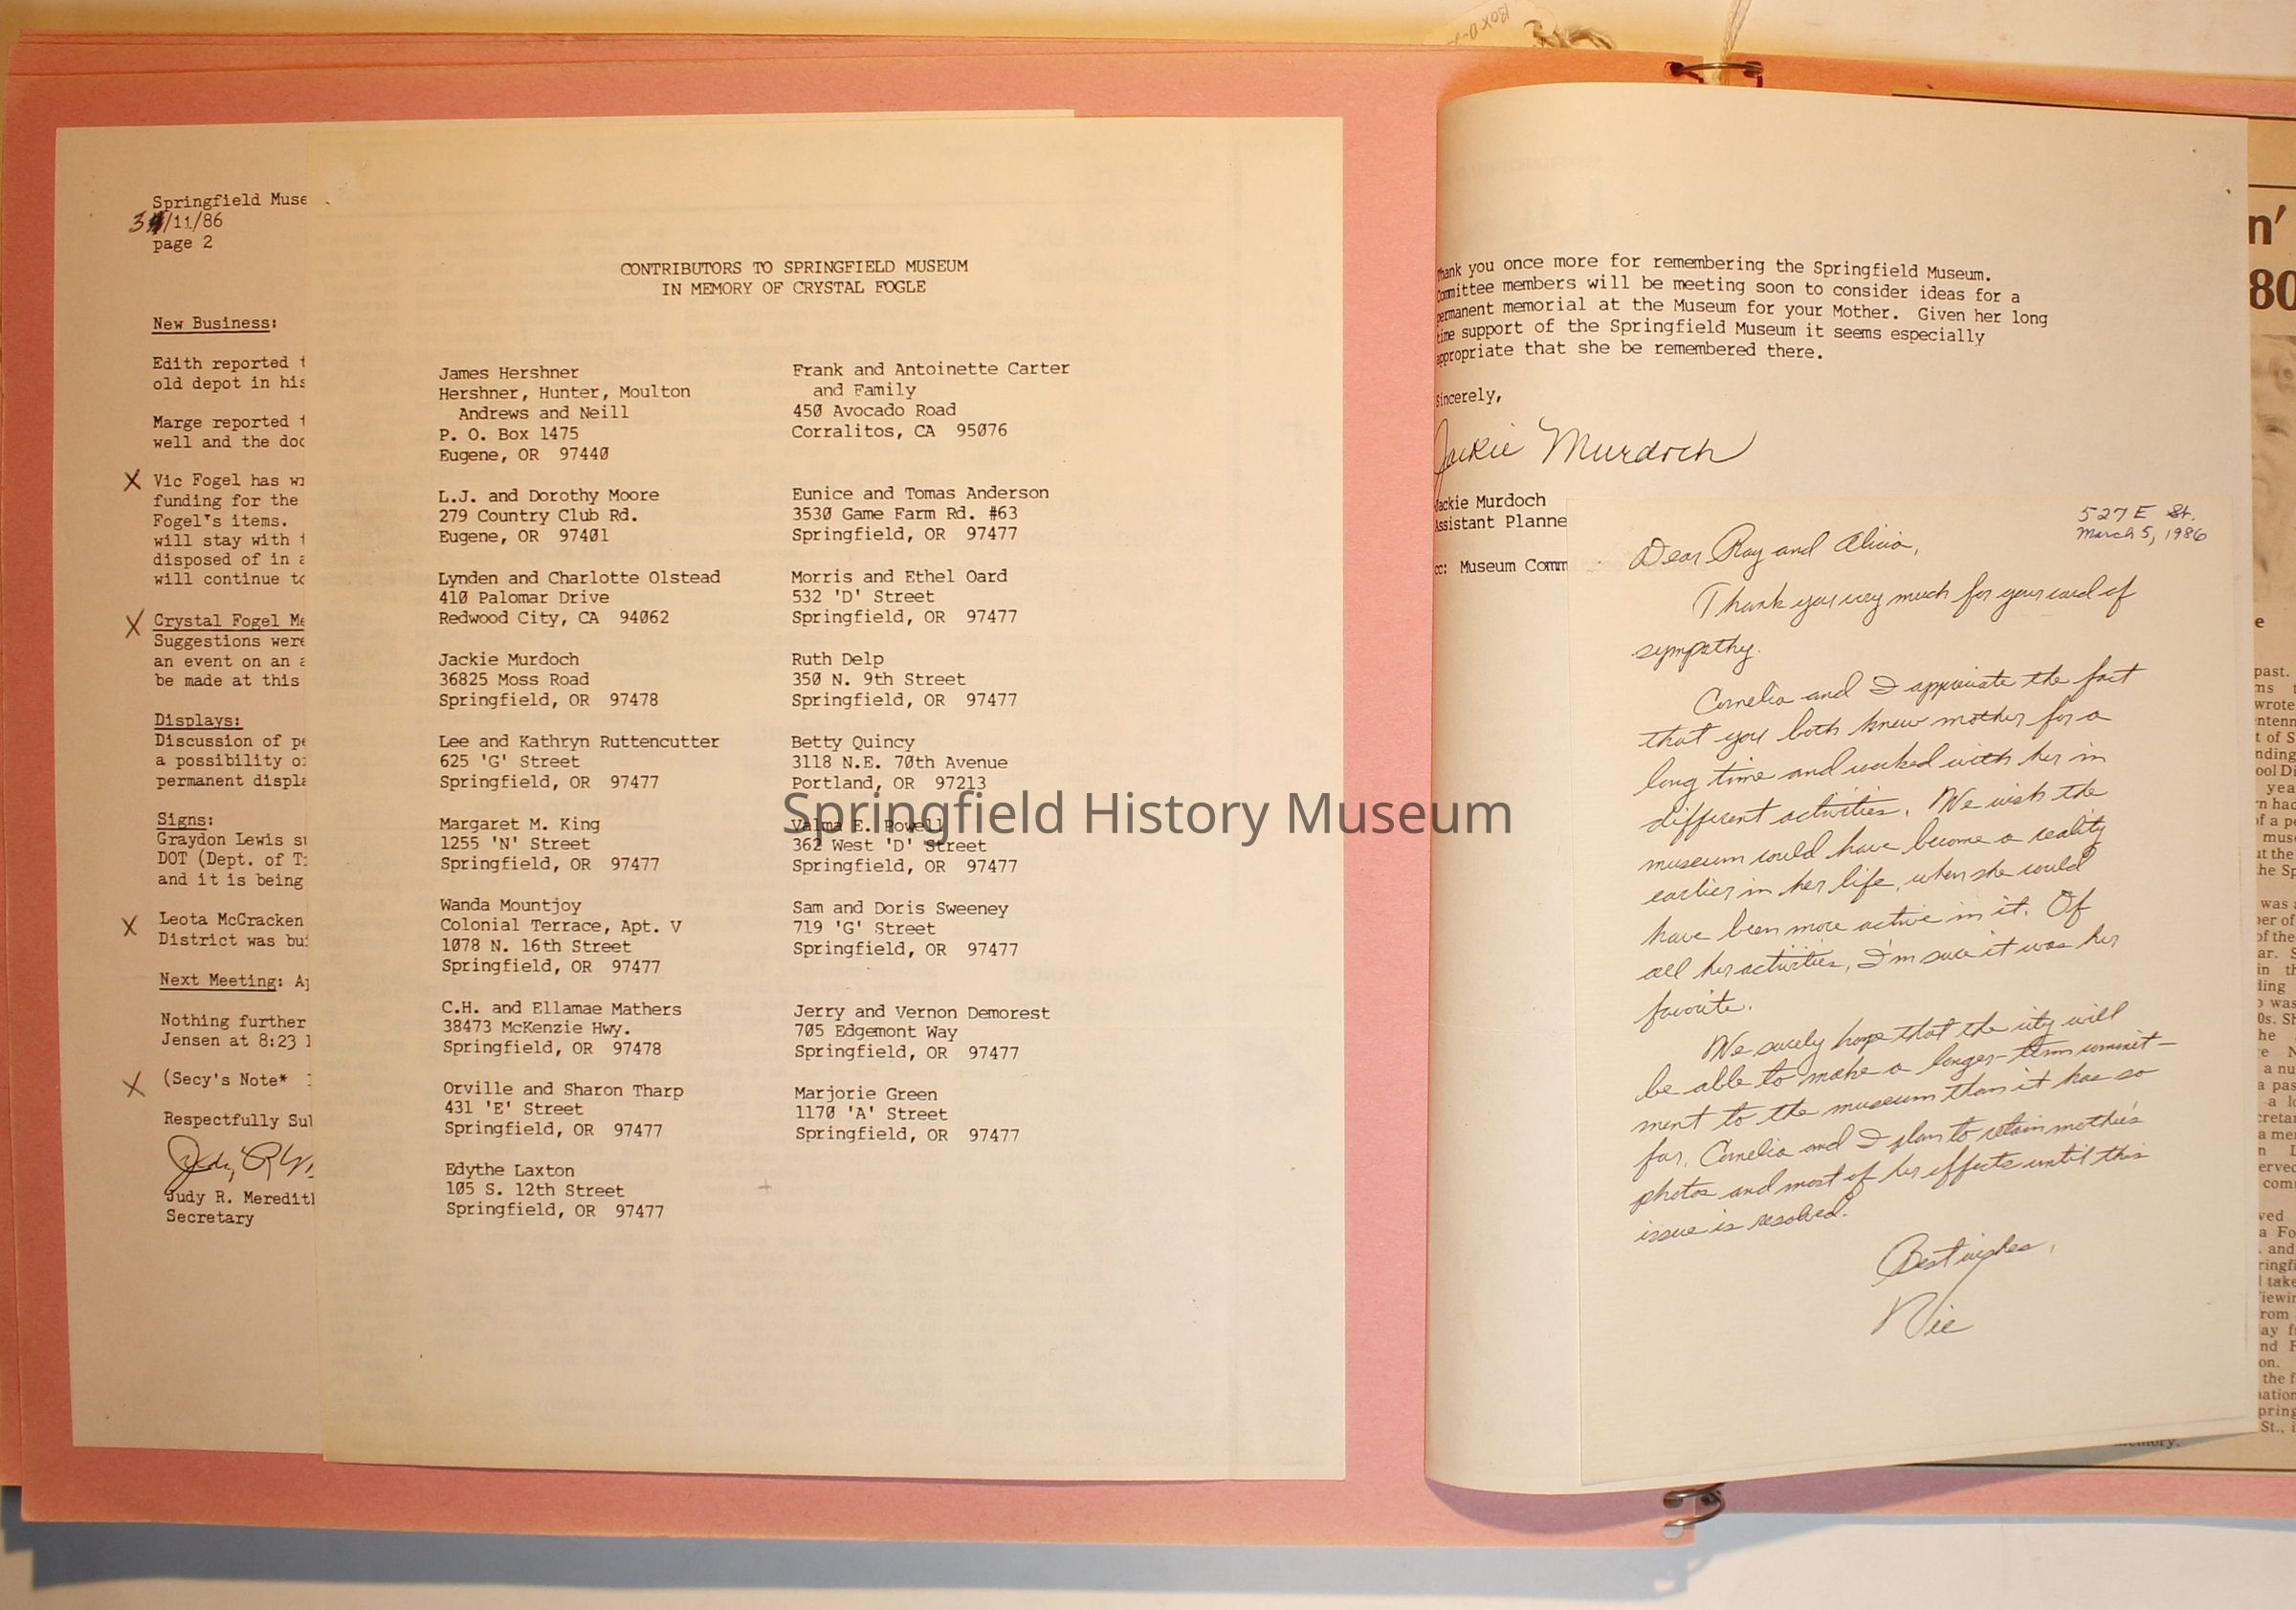 Box
Springfield Muse
3/11/86
page 2
New Business:
Edith reported
old depot in his
Marge reported
well and the doc
X Vic Fogel has
funding for the
Fogel's items.
will stay with
disposed of in a
will continue to
X Crystal Fogel Me
Suggestions were
an event on an a
be made at this
Displays:
Discussion of pe
a possibility o
permanent displa
Signs:
Graydon Lewis su
DOT (Dept. of T
and it is being
X Leota McCracken
District was bu
Next Meeting: A
Nothing further
Jensen at 8:23
X (Secy's Note*
Respectfully Su
Judy R. Meredith
Secretary
CONTRIBUTORS TO SPRINGFIELD MUSEUM
IN MEMORY OF CRYSTAL FOGLE
James Hershner
Hershner, Hunter, Moulton
Andrews and Neill
P. O. Box 1475
Eugene, OR 97440
L.J. and Dorothy Moore
279 Country Club Rd.
Eugene, OR 97401
Lynden and Charlotte Olstead
410 Palomar Drive
Redwood City, CA 94062
Jackie Murdoch
36825 Moss Road
Springfield, OR 97478
Lee and Kathryn Ruttencutter
625 'G' Street
Springfield, OR 97477
Margaret M. King
1255 'N' Street
Springfield, OR 97477
Wanda Mountjoy
Colonial Terrace, Apt. V
1078 N. 16th Street
Springfield, OR 97477
C.H. and Ellamae Mathers
38473 McKenzie Hwy.
Springfield, OR 97478
Orville and Sharon Tharp
431 'E' Street
Springfield, OR 97477
Edythe Laxton
105 S. 12th Street
Springfield, OR 97477
Frank and Antoinette Carter
and Family
450 Avocado Road
Corralitos, CA 95076
Eunice and Tomas Anderson
3530 Game Farm Rd. #63
Springfield, OR 97477
Morris and Ethel Oard
532 'D' Street
Springfield, OR 97477
Ruth Delp
350 N. 9th Street
Springfield, OR 97477
Betty Quincy
3118 N.E. 70th Avenue
Portland, OR 97213
Valma E. Powell
362 West 'D' Street
Springfield, OR 97477
Sam and Doris Sweeney
719 'G' Street
Springfield, OR 97477
Jerry and Vernon Demorest
705 Edgemont Way
Springfield, OR 97477
Marjorie Green
1170 'A' Street
Springfield, OR 97477
Springfield History Museum
Thank you once more for remembering the Springfield Museum.
Committee members will be meeting soon to consider ideas for a
permanent memorial at the Museum for your Mother. Given her long
time support of the Springfield Museum it seems especially
appropriate that she be remembered there.
Sincerely,
Jackie Murdoch
Jackie Murdoch
Assistant Planne
cc: Museum Comm
527 E St.
March 5, 1986
Dear Ray and Alicia,
Thank you very much for your card of
sympathy.
Cornelia and I appreciate the fact
that you both knew mother for a
long time and worked with her in
different activities. We wish the
museum could have become a reality
earlier in her life, when she could
have been more active in it. Of
all her activities, I'm sure it was her
favorite.
We surely hope that the city will
be able to make a longer-term commit-
ment to the museum than it has so
far. Cornelia and I plan to retain mother's
photos and most of her effects until this
issue is resolved.
Best wishes,
Vic
n'
80
past.
wrote